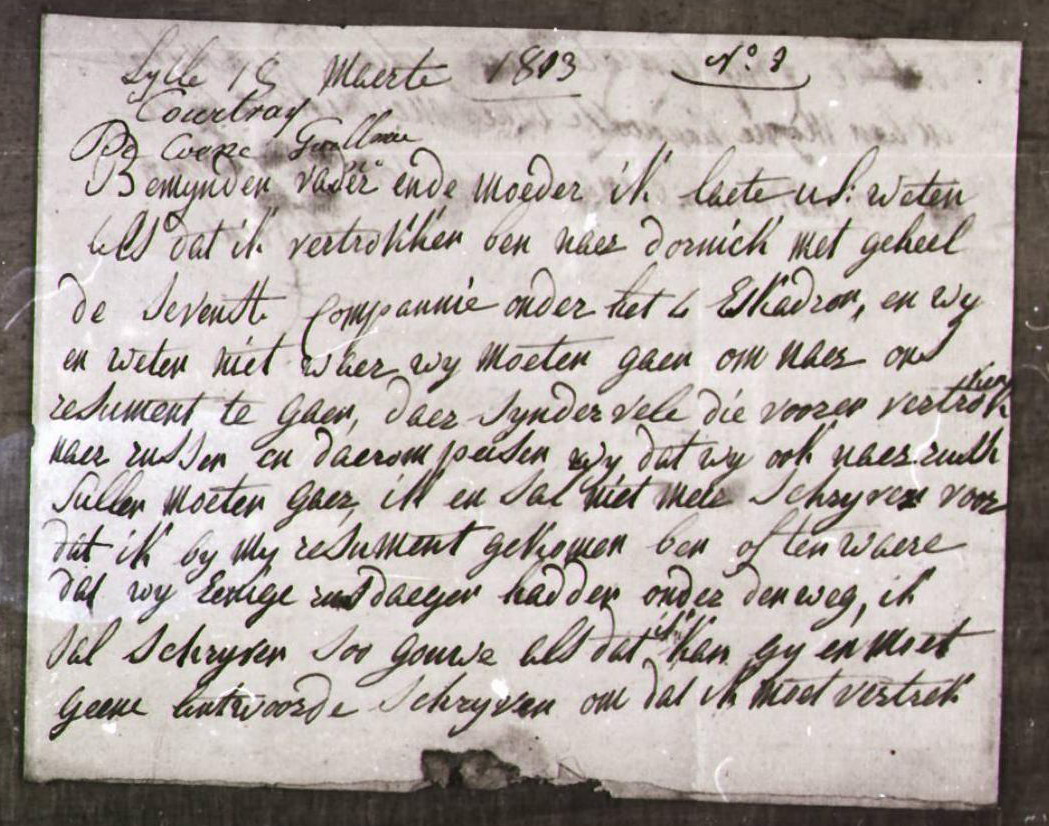 Lylle 18 Maerte 1813 N° 9
Courtray
De Coene Guillme
Bemynden vader ende moeder ik laete ul: weten
als dat ik vertrokken ben naer dornick met geheel
de sevenste Compannie onder het 4 Eskadron, en wy
en weten niet waer wy moeten gaen om naer ons
resument te gaen, daer synder vele die vooren vertrokken
naer russen en daerom peisen wy dat wy ook naer
sullen moeten gaen, ik en sal niet meer schryven voor
dat ik by my resument gekomen ben often waere
dat wy Eenige rustdaegen hadden onder den weg, ik
sal schryven soo gouwe als dat ik kan gy en moet
geene antwoorde schryven om dat ik moet vertrek